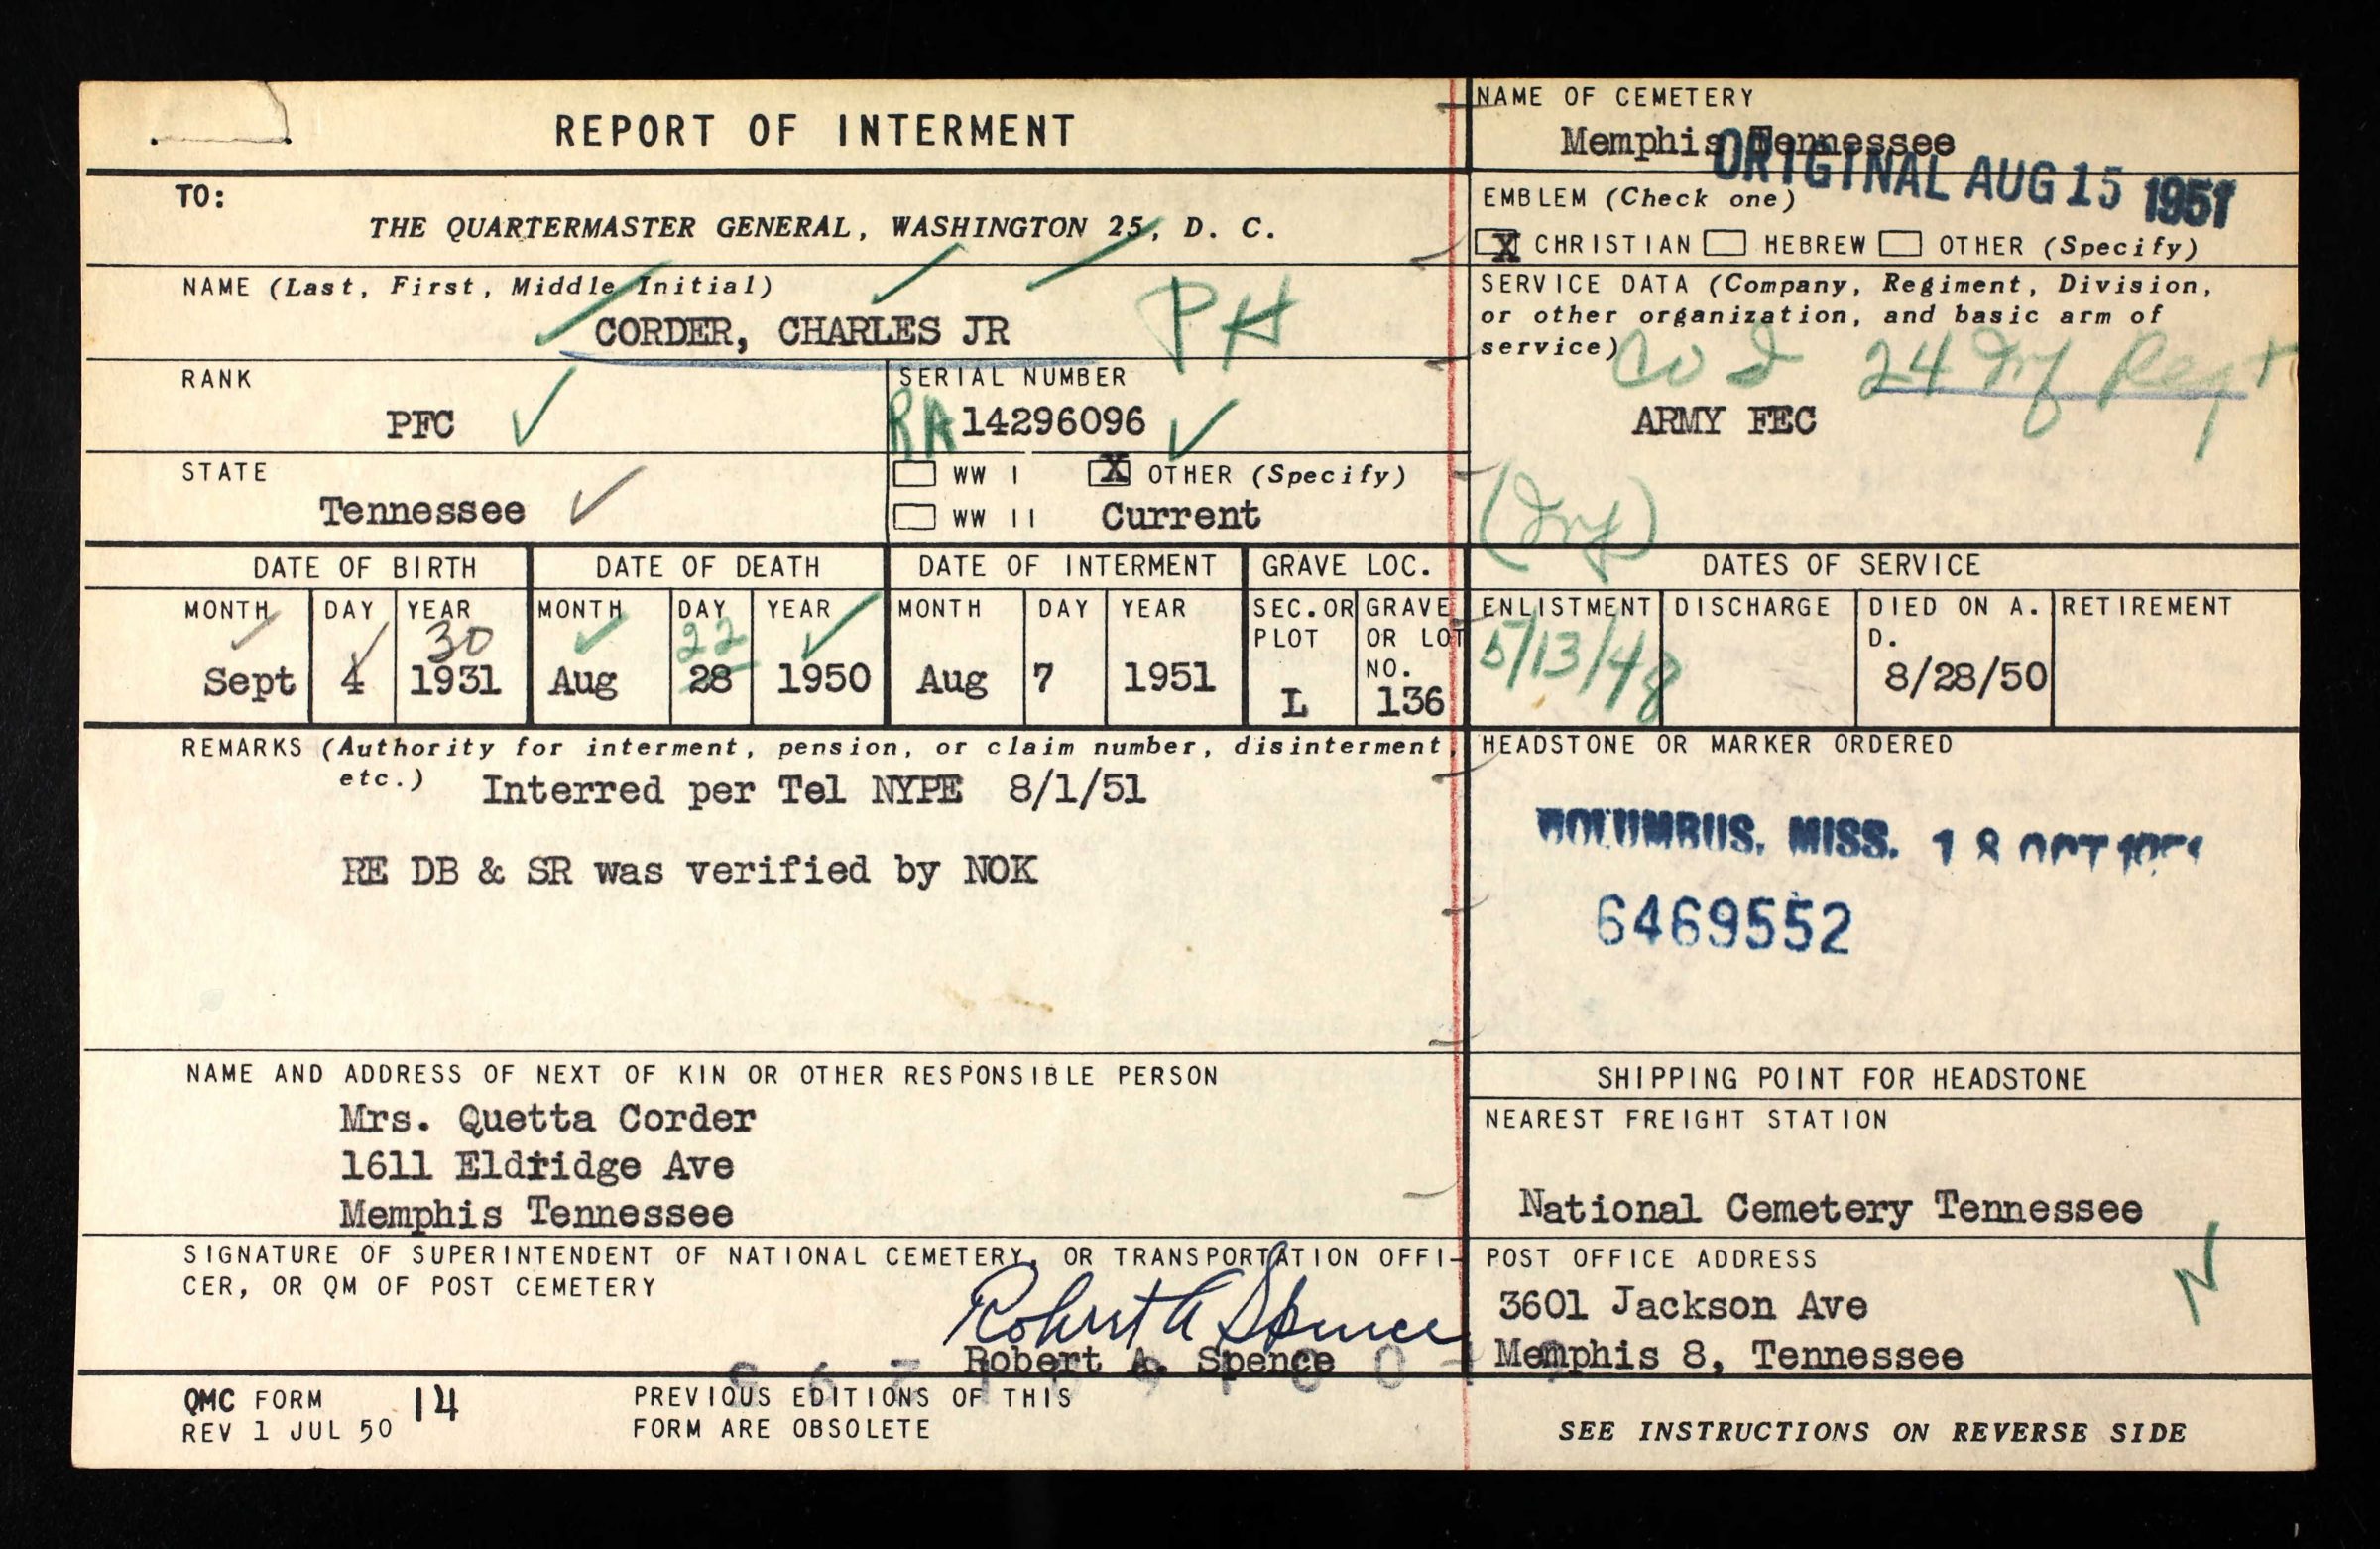 REPORT OF INTERMENT
TO:
THE QUARTERMASTER GENERAL, WASHINGTON 25, D. C.
NAME (Last, First, Middle Initial)
CORDER, CHARLES JR
PH
RANK
PFC
SERIAL NUMBER
RA 14296096
STATE
Tennessee
WW I
X OTHER (Specify)
WW II
Current
NAME OF CEMETERY
Memphis Tennessee
ORIGINAL AUG 15 1951
EMBLEM (Check one)
X CHRISTIAN HEBREW OTHER (Specify)
SERVICE DATA (Company, Regiment, Division,
or other organization, and basic arm of
service)
Co I 24 Inf Regt
ARMY FEC
(Inf)
DATE OF BIRTH DATE OF DEATH DATE OF INTERMENT GRAVE LOC. DATES OF SERVICE
MONTH DAY YEAR MONTH DAY YEAR MONTH DAY YEAR SEC. OR PLOT GRAVE OR LOT NO. ENLISTMENT DISCHARGE DIED ON A. D. RETIREMENT
30 22
Sept 4 1931 Aug 28 1950 Aug 7 1951 L 136 5/13/48 8/28/50
REMARKS (Authority for interment, pension, or claim number, disinterment,
etc.) Interred per Tel NYPE 8/1/51
RE DB & SR was verified by NOK
HEADSTONE OR MARKER ORDERED
COLUMBUS, MISS. 18 OCT
6469552
NAME AND ADDRESS OF NEXT OF KIN OR OTHER RESPONSIBLE PERSON
Mrs. Quetta Corder
1611 Eldridge Ave
Memphis Tennessee
SHIPPING POINT FOR HEADSTONE
NEAREST FREIGHT STATION
National Cemetery Tennessee
SIGNATURE OF SUPERINTENDENT OF NATIONAL CEMETERY, OR TRANSPORTATION OFFI-
CER, OR QM OF POST CEMETERY
Robert A Spence
Robert A. Spence
POST OFFICE ADDRESS
3601 Jackson Ave
Memphis 8, Tennessee
N
QMC FORM 14
REV 1 JUL 50
PREVIOUS EDITIONS OF THIS
FORM ARE OBSOLETE
SEE INSTRUCTIONS ON REVERSE SIDE